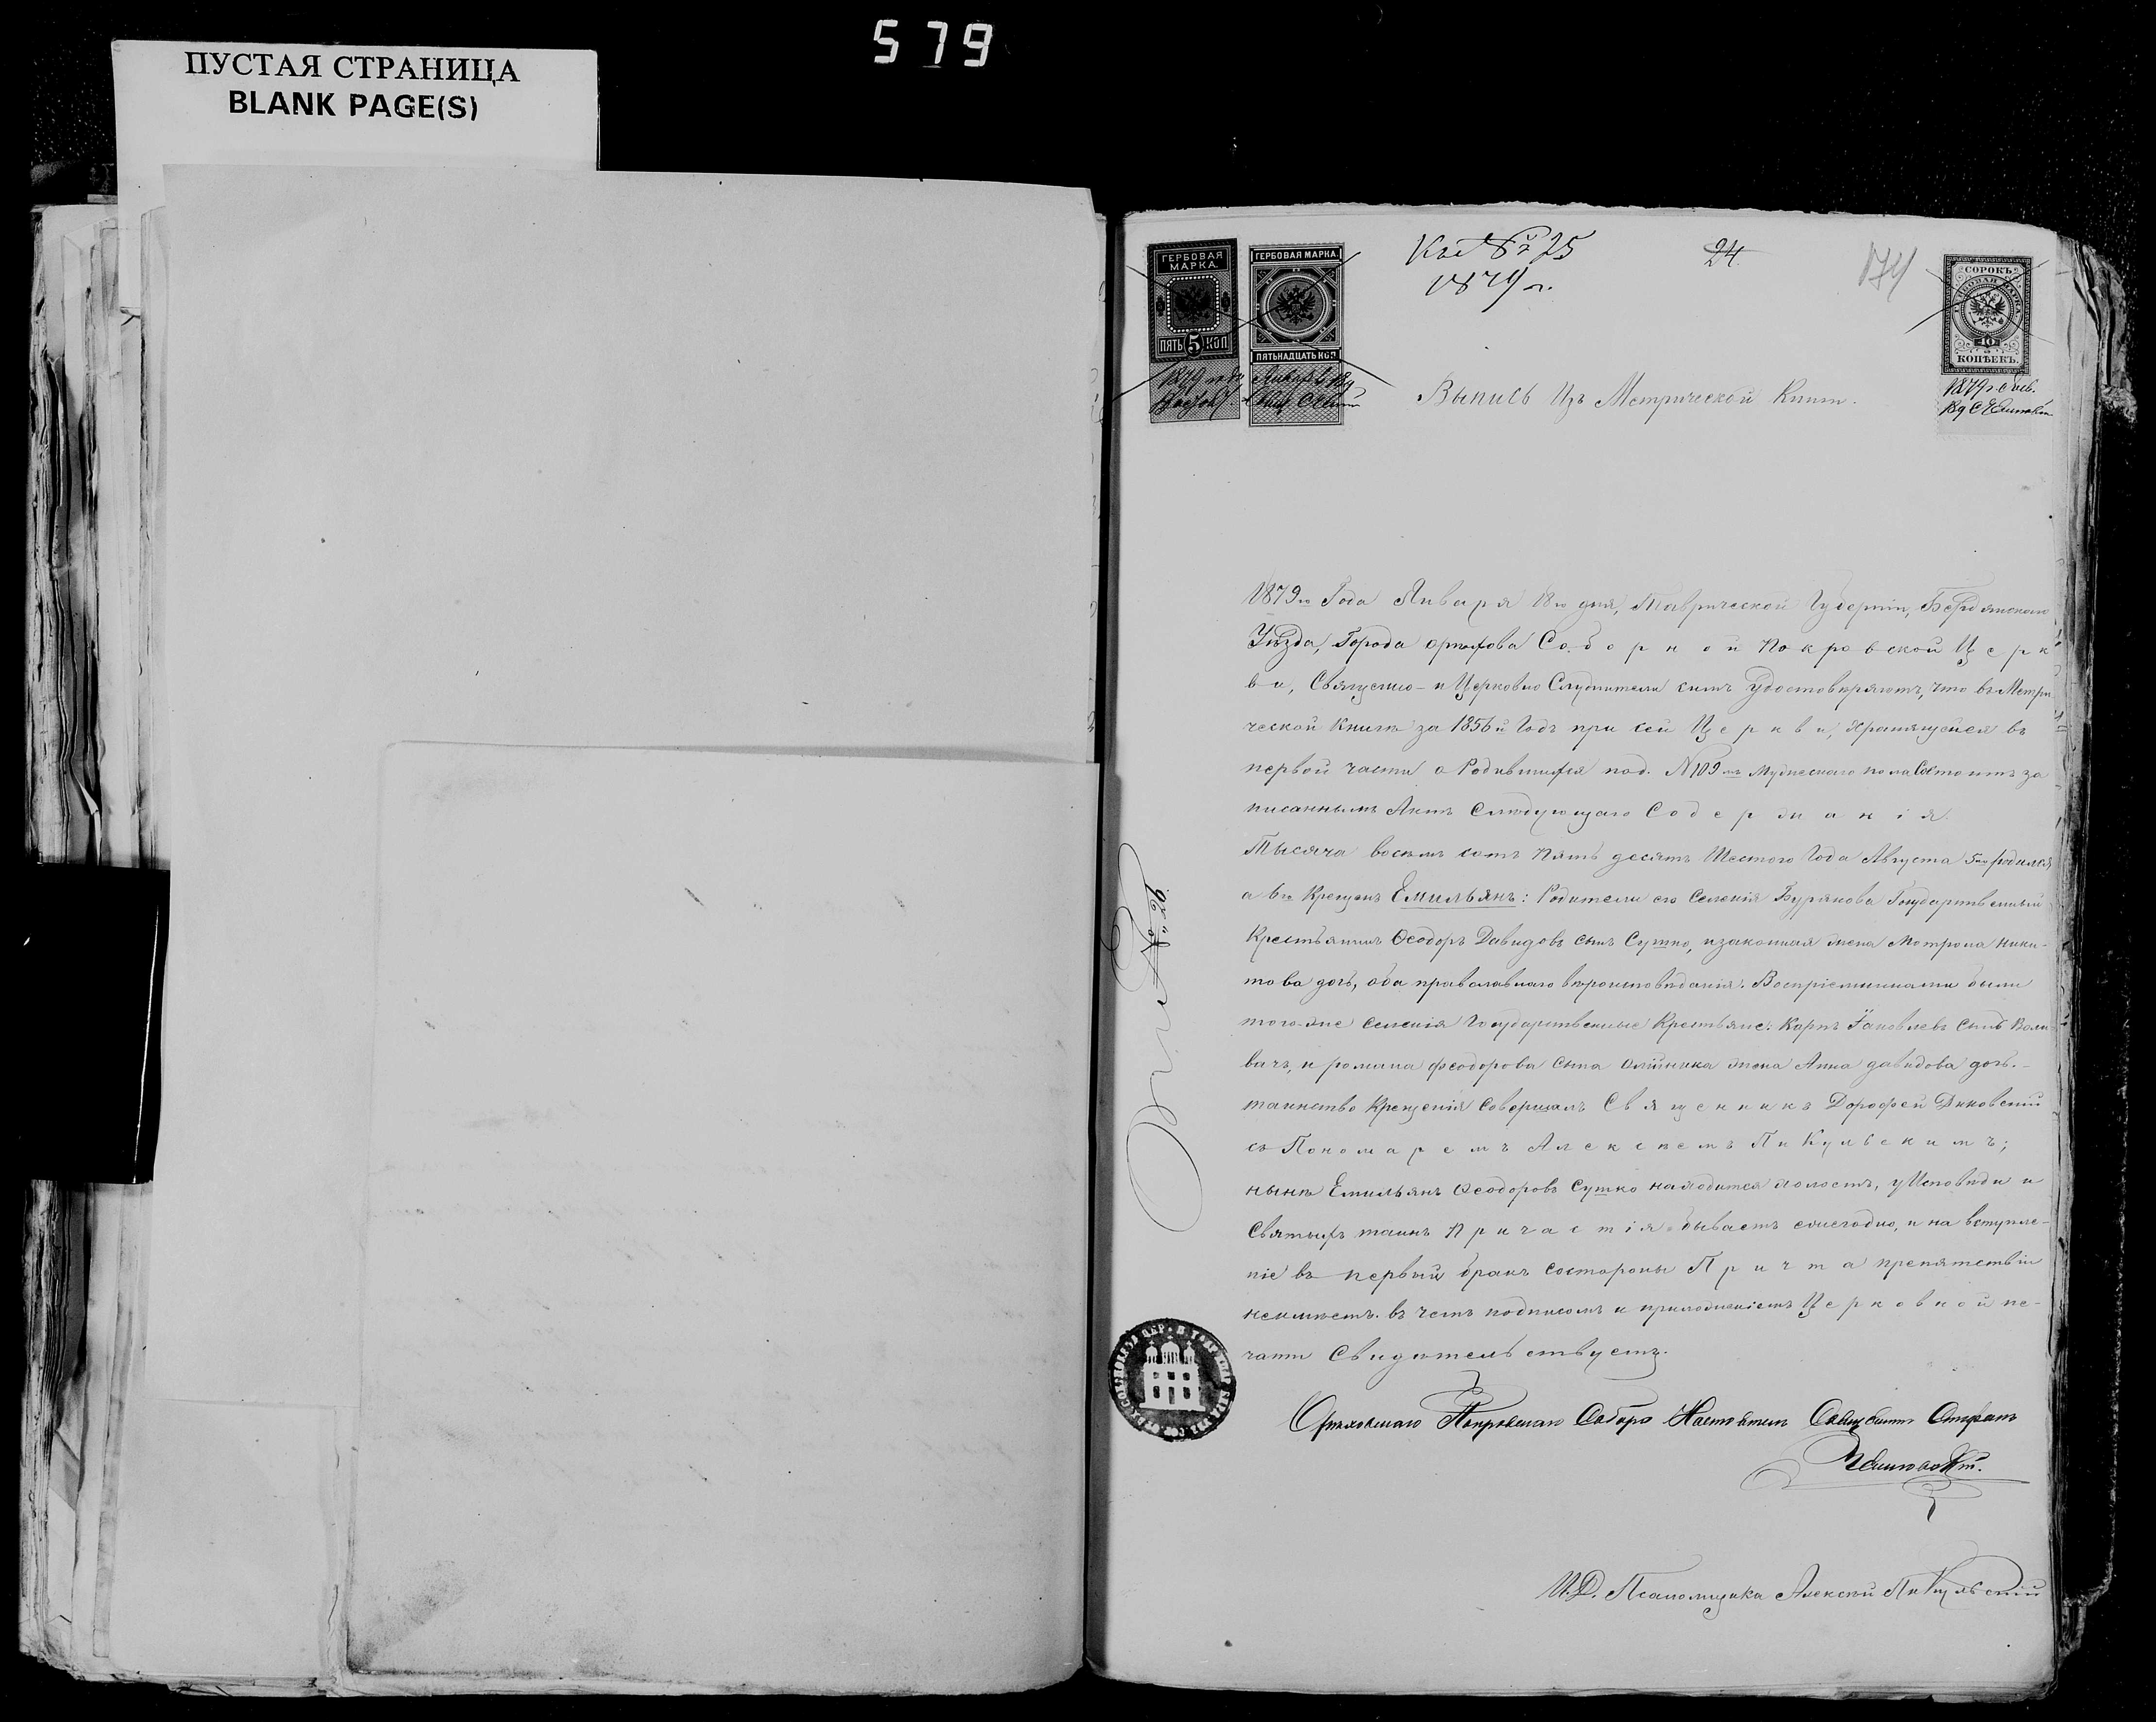 579
ПУСТАЯ СТРАНИЦА
BLANK PAGE(S)
Къ № 25
1879 г.
24
174
ГЕРБОВАЯ МАРКА
ПЯТЬ 5 КОП
ГЕРБОВАЯ МАРКА
ПЯТЬНАДЦАТЬ КОП
СОРОКЪ
40
КОПѢЕКЪ
Выпись Изъ Метрической Книги.
1879го Года Января 18го дня, Таврической Губерніи, Бердянскаго
Уѣзда, Города орѣхова Соборной Покровской Церк
ви, Священно-и Церковно Служители симъ Удостовѣряютъ, что въ Метри
ческой Книгѣ за 1856й Годъ при сей Церкви, Хранящейся въ
первой части о Родившихся под. №109мъ Мужескаго пола Состоитъ за
писаннымъ Актъ Слѣдующаго Содержанія.
Тысяча восемь сотъ Пять десятъ Шестого Года Августа 5го родился
а 6го Крещенъ Емильянъ: Родители его Селенія Бурякова Государственный
Крестьянинъ Ѳеодоръ Давидовъ сынъ Сушко, изаконная жена Мотрона Ники-
това дочь, оба православнаго вѣроисповѣданія. Воспріемниками были
того-же Селенія Государственные Крестьяне: Карпъ Іаковлевъ сынъ Воли
вачъ, и романа феодорова сына Олійника жена Анна давидова дочь.-
таинство Крещенія Совершалъ Священникъ Дорофей Диковскій
съ Пономаремъ Алексѣемъ Пикульскимъ;
нынѣ Емильянъ Ѳеодоровъ Сушко находится холостъ, у Исповѣди и
Святыхъ таинъ Причастія бываетъ ежегодно, и на вступле-
ніе въ первый бракъ состороны Причта препятствій
неимѣетъ. въ чемъ подписомъ и приложеніемъ Церковной пе-
чати Свидѣтельствуетъ.
Орѣховскаго Покровскаго Собора Настоятель Священникъ Стефанъ
И.Д. Псаломщика Алексѣй Пикульскій
№ 26.